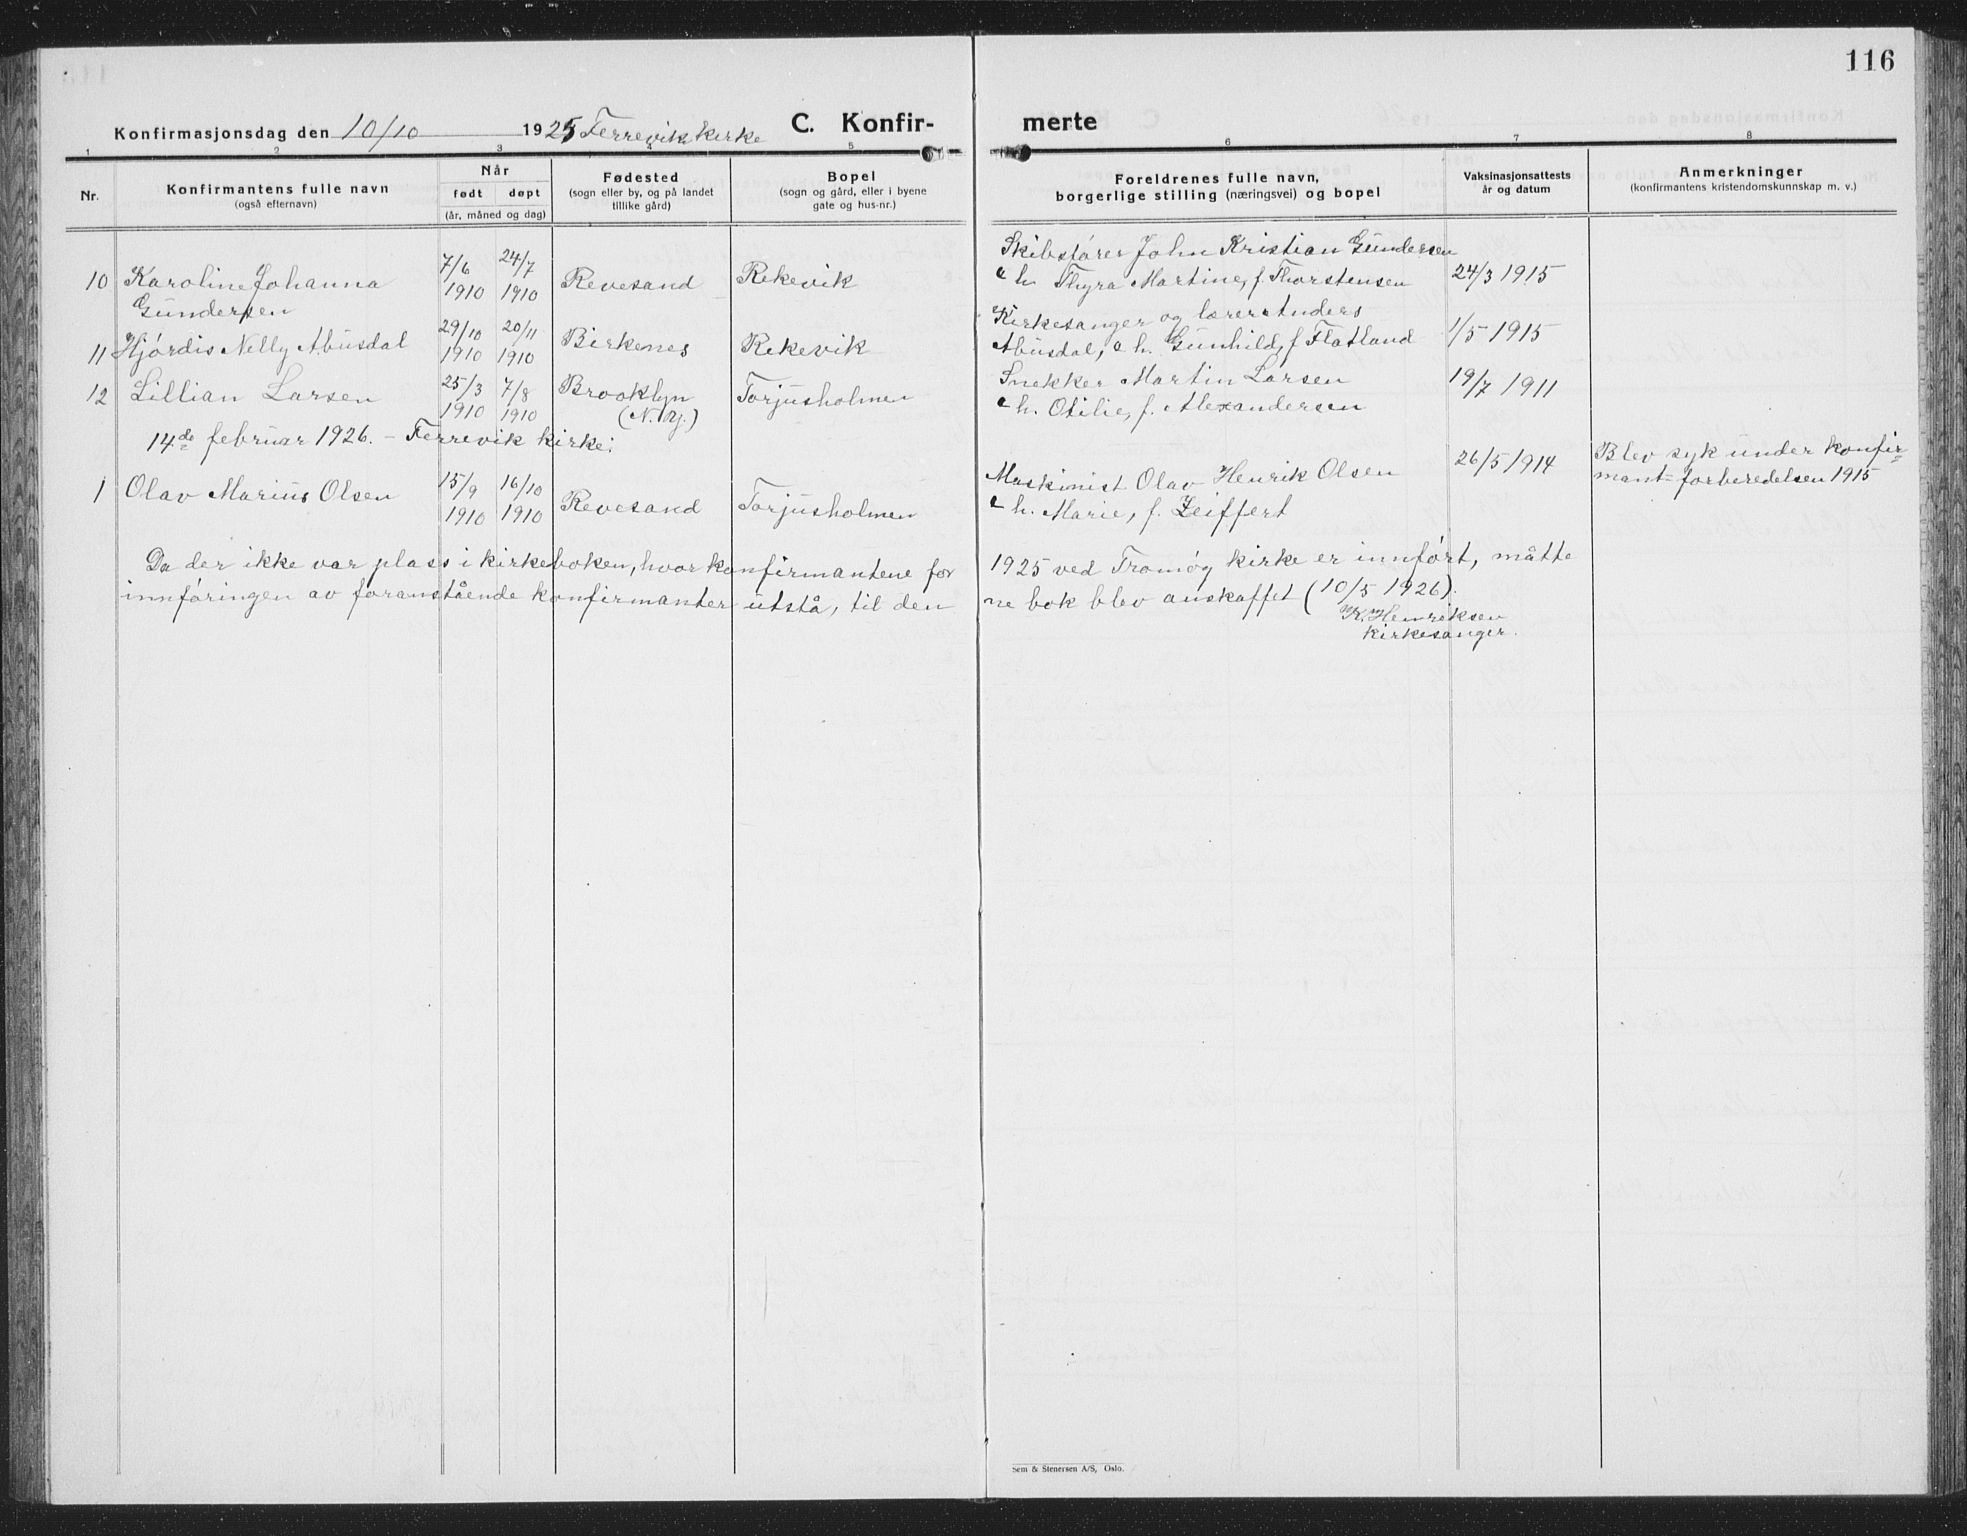 116
Konfirmasjonsdag den 10/10 1925 Færrevik kirke C. Konfir-
merte
1 2 3 4 5 6 7 8
Nr.
Konfirmantens fulle navn
(også efternavn)
Når
født døpt
(år, måned og dag)
Fødested
(sogn eller by, og på landet
tillike gård)
Bopel
(sogn og gård, eller i byene
gate og hus-nr.)
Foreldrenes fulle navn,
borgerlige stilling (næringsvei) og bopel
Vaksinasjonsattests
år og datum
Anmerkninger
(konfirmantens kristendomskunnskap m. v.)
10 Karoline Johanna
Gundersen
7/6 1910
24/7 1910
Revesand
Rekevik
Skibsfører John Kristian Gundersen
& h. Thyra Martine, f. Thorstensen
24/3 1915
11 Hjördis Nelly Abusdal
29/10 1910
20/11 1910
Birkenes
Rekevik
Kirkesanger og lærer Anders
Abusdal, & h. Gunhild, f Flatland
1/5 1915
12 Lillian Larsen
25/3 1910
7/8 1910
Brooklyn
(N. Y.)
Torjusholmen
Snekker Martin Larsen
& h. Otilie, f. Alexandersen
19/7 1911
14de februar 1926. - Færrevik kirke:
1 Olav Marius Olsen
15/9 1910
16/10 1910
Revesand
Torjusholmen
Maskinist Olav Henrik Olsen
& h. Marie, f. Zeiffert
26/5 1914
Blev syk under konfir-
mant-forberedelsen 1915
Da der ikke var plass i kirkeboken, hvor konfirmantene for 1925 ved Tromøy kirke er innført, måtte
innföringen av foranstående konfirmanter utstå, til denne bok blev anskaffet (10/5 1926).
K. Henriksen
kirkesanger.
Sem & Stenersen A/S, Oslo.